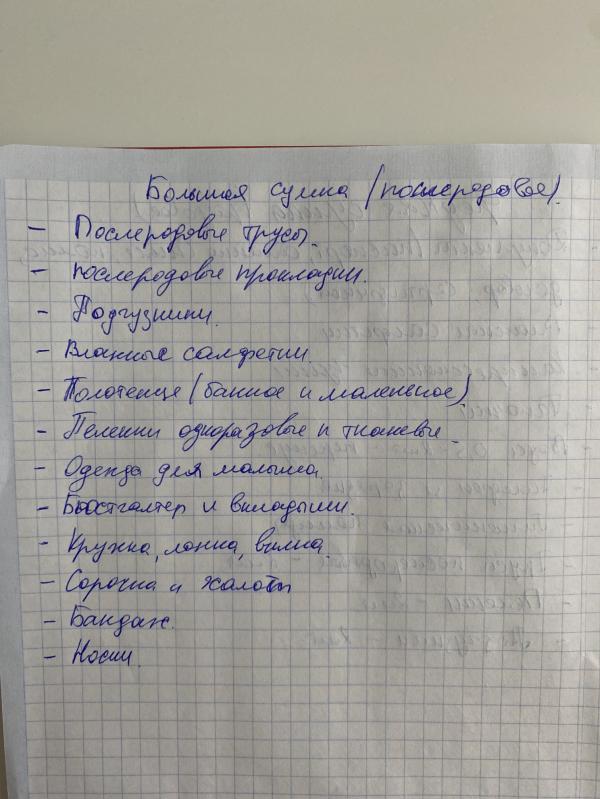 Большая сумка (послеродовое).
- Послеродовые трусы.
- послеродовые прокладки.
- Подгузники.
- Влажные салфетки.
- Полотенце (банное и маленькое).
- Пеленки одноразовые и тканевые.
- Одежда для малыша.
- Бюстгалтер и вкладыши.
- Кружка, ложка, вилка.
- Сорочка и халаты
- Бандаж.
- Носки.